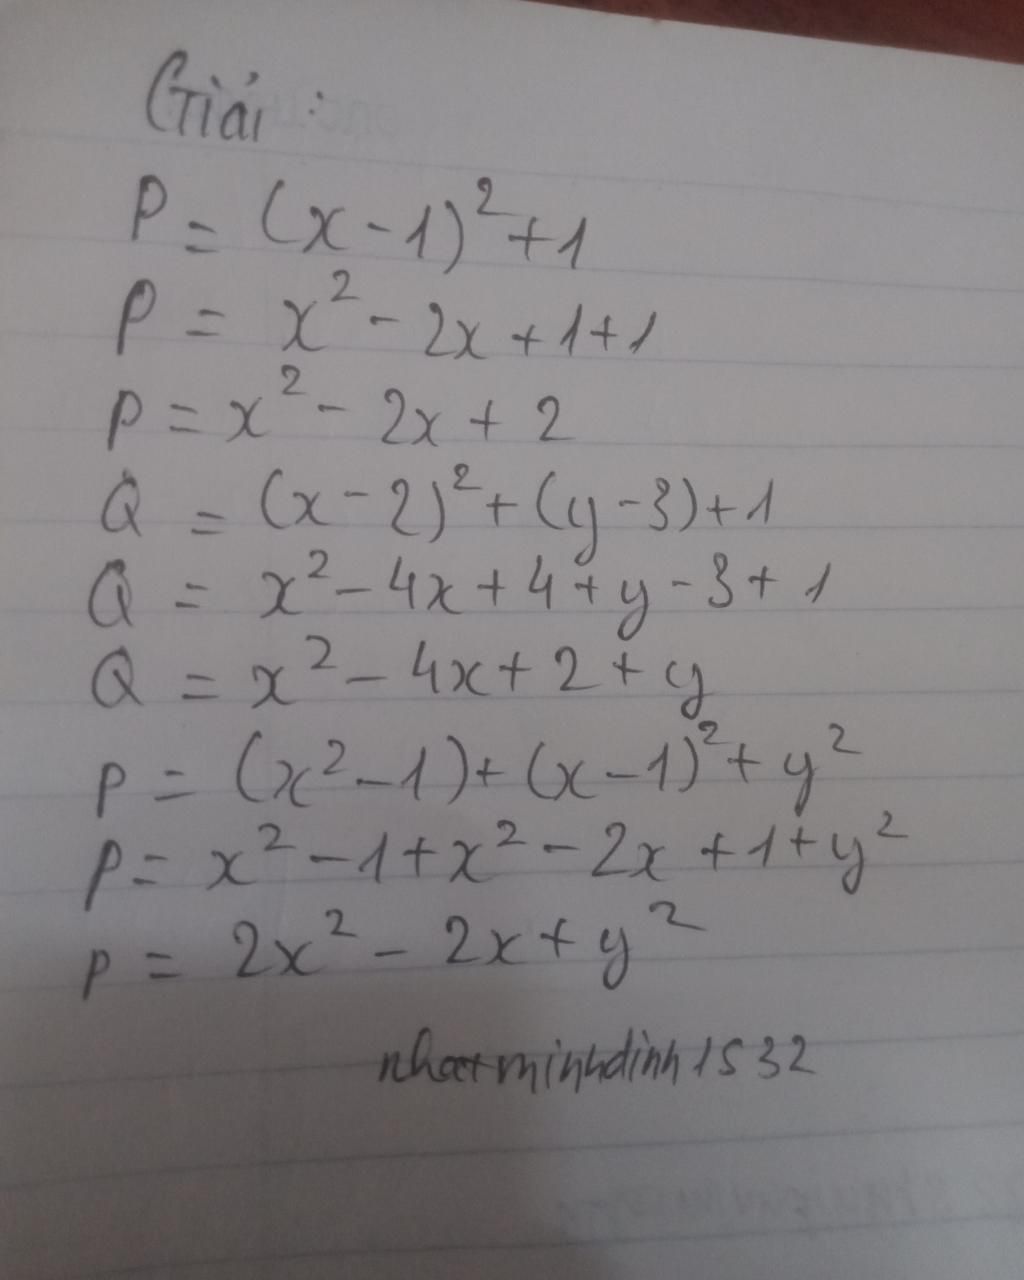 Giải:
P = (x-1)²+1
P = x² - 2x + 1+1
P = x² - 2x + 2
Q = (x-2)²+(y-3)+1
Q = x² - 4x + 4 + y - 3 + 1
Q = x² - 4x + 2 + y
P = (x²-1)+(x-1)²+y²
P = x² - 1 + x² - 2x + 1 + y²
P = 2x² - 2x + y²
nhatminhdinh1532